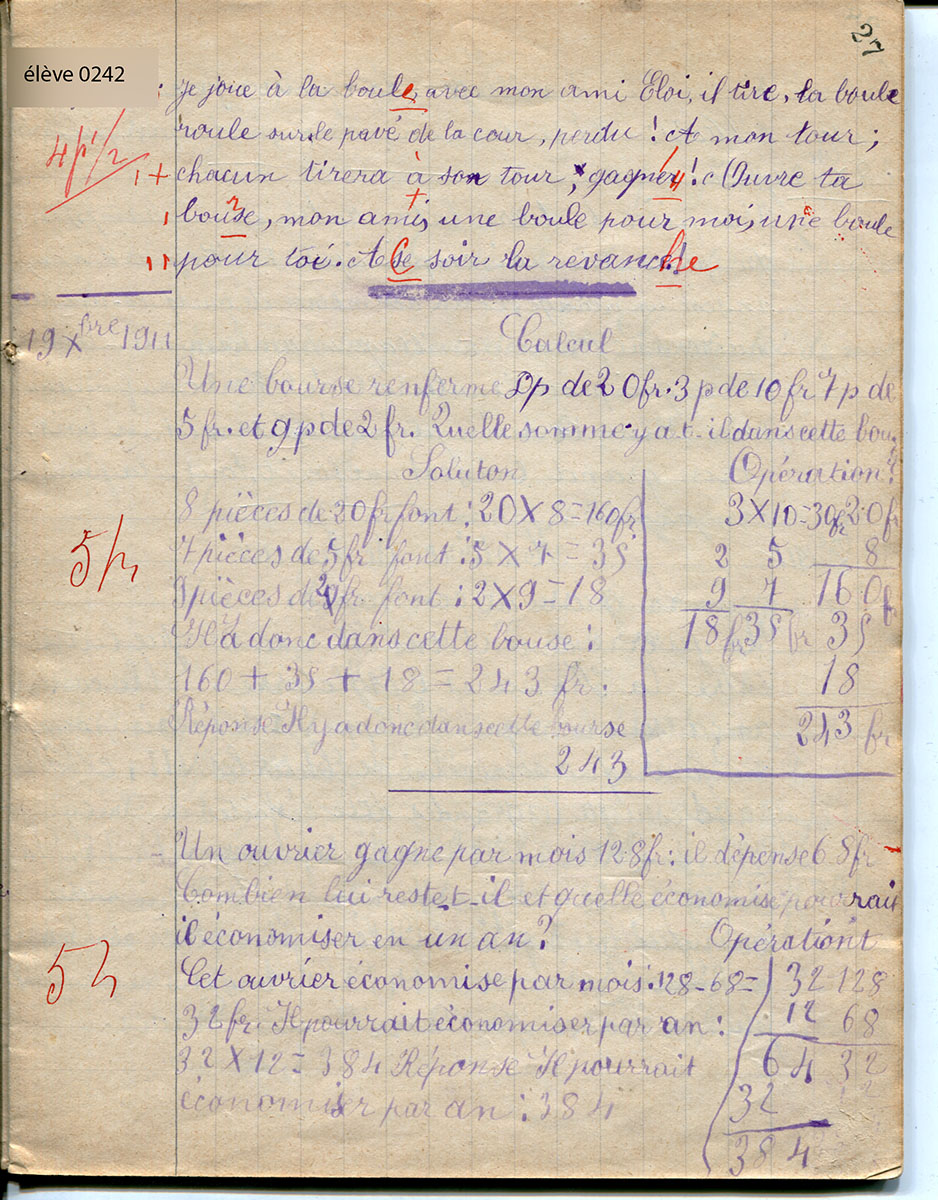 27
élève 0242
je joue à la boule, avec mon ami Eloi, il tire, la boule
roule sur le pavé de la cour, perdu ! A mon tour ;
4 1/2
chacun tirera à son tour, gagner ! Ouvre ta
bouse, mon ami, une boule pour moi, une boule
pour toi. A se soir la revanche
19 Xbre 1911
Calcul
Une bourse renferme 8p de 20fr. 3 p de 10 fr 7 p de
5 fr. et 9 p de 2 fr. Quelle somme y a t-il dans cette bou
Soluton
Opération
8 pièces de 20 fr font : 20 X 8 = 160 fr
3 X 10 = 30 fr 20 fr
5
7 pièces de 5 fr font : 5 X 7 = 35
2 5 8
9 pièces de 2 fr font : 2 X 9 = 18
9 7 160 fr
Il a donc dans cette bouse :
18 fr 35 fr 35
160 + 35 + 18 = 243 fr.
18
Réponse Il y a donc dans cette bourse
243 fr
243
Un ouvrier gagne par mois 128 fr : il dépense 6 8 fr
Combien lui reste t-il et quelle économise pourrait
il économiser en un an ?
Opérationt
5
Cet ouvrier économise par mois : 128 - 68 =
32 128
32 fr. Il pourrait économiser par an :
12 68
32 X 12 = 384 Réponse Il pourrait
64 32
économiser par an : 384
32
384